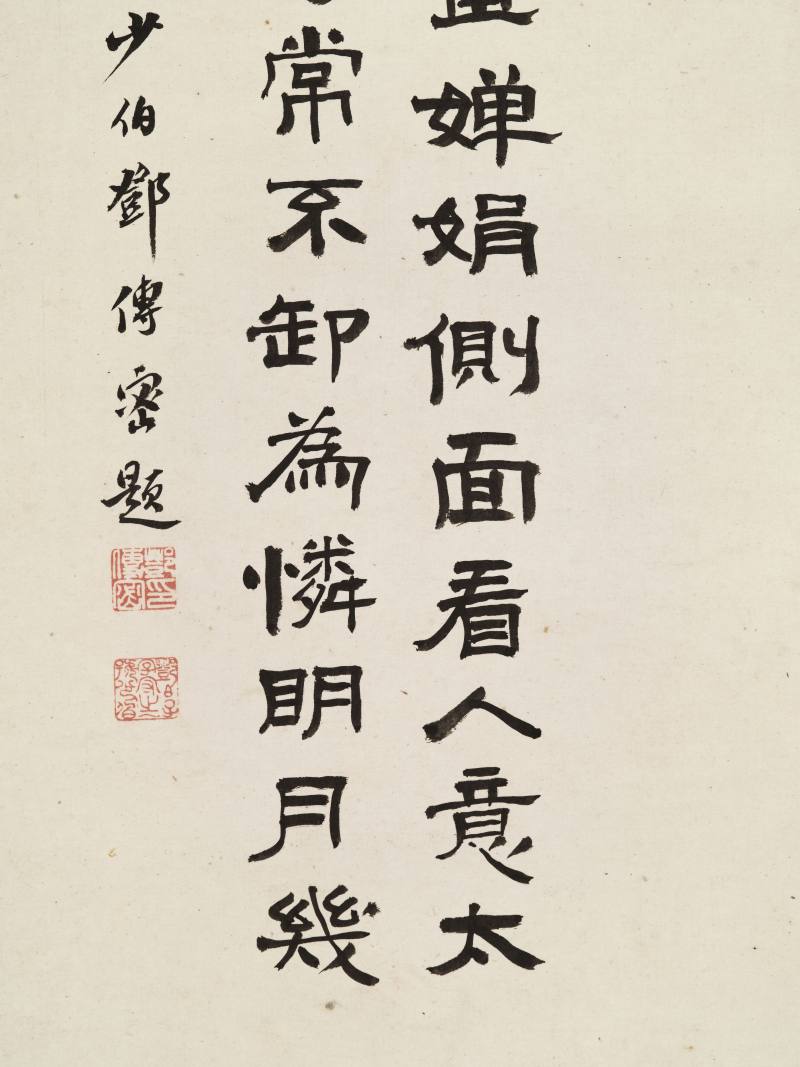 嬋娟側面看人意太
常不卸為憐明月幾
少伯鄧傳密題
鄧印傳密